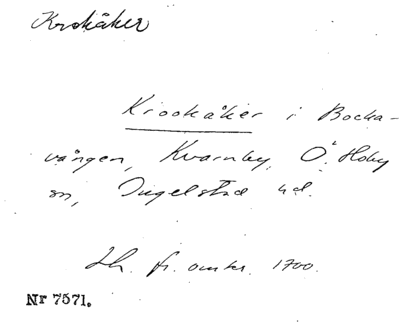 Krokåker
Krookåker i Bocka-
vången, Kvarnby, Ö. Hoby
sn, Ingelstad hd.
Lh. fr. omkr. 1700.
Nr 7571.